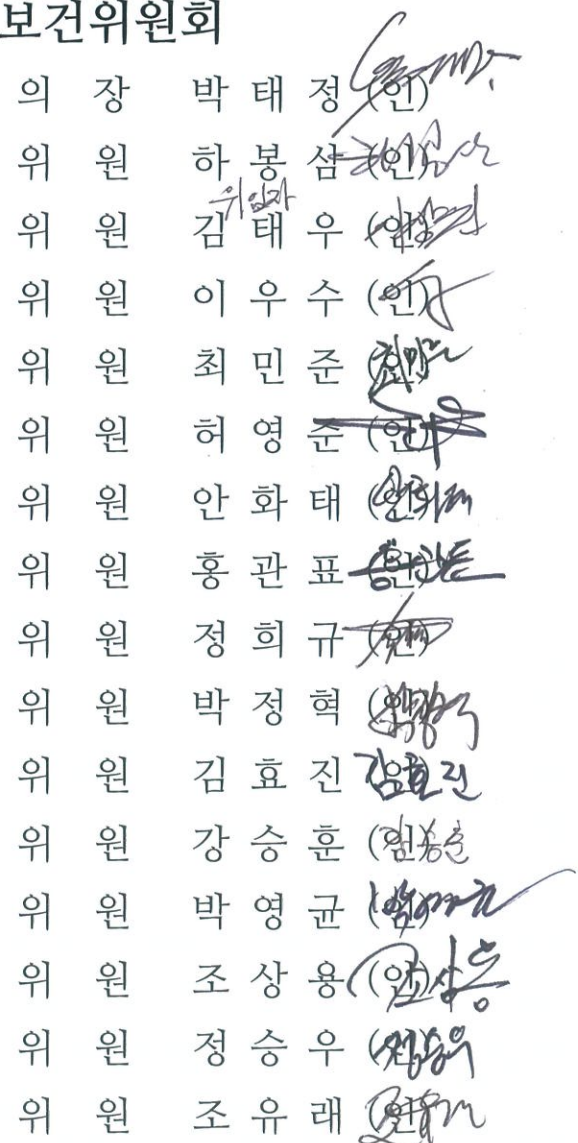 보건위원회
의 장 박 태 정 (인)
위 원 하 봉 삼 (인)
위임자
위 원 김 태 우 (인)
위 원 이 우 수 (인)
위 원 최 민 준 (인)
위 원 허 영 준 (인)
위 원 안 화 태 (인)
위 원 홍 관 표 (인)
위 원 정 희 규 (인)
위 원 박 정 혁 (인)
위 원 김 효 진 (인) 김효진
위 원 강 승 훈 (인)
위 원 박 영 균 (인)
위 원 조 상 용 (인)
위 원 정 승 우 (인)
위 원 조 유 래 (인)